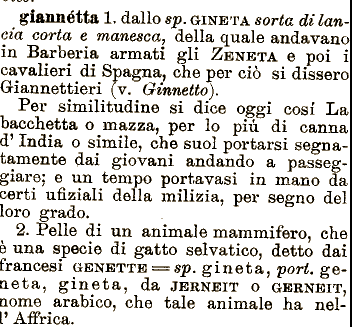 giannétta 1. dallo sp. GINETA sorta di lan-
cia corta e manesca, della quale andavano
in Barberia armati gli ZENETA e poi i
cavalieri di Spagna, che per ciò si dissero
Giannettieri (v. Ginnetto).
Per similitudine si dice oggi cosí La
bacchetta o mazza, per lo piú di canna
d' India o simile, che suol portarsi segna-
tamente dai giovani andando a passeg-
giare; e un tempo portavasi in mano da
certi ufiziali della milizia, per segno del
loro grado.
2. Pelle di un animale mammifero, che
è una specie di gatto selvatico, detto dai
francesi GENETTE = sp. gineta, port. ge-
neta, gineta, da JERNEIT O GERNEIT,
nome arabico, che tale animale ha nel-
l' Affrica.